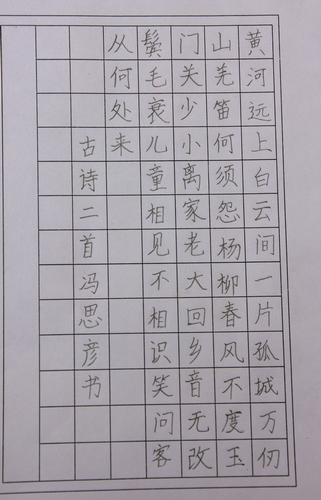 黄河远上白云间一片孤城万仞
山羌笛何须怨杨柳春风不度玉
门关少小离家老大回乡音无改
鬓毛衰儿童相见不相识笑问客
从何处来
古诗二首冯思彦书